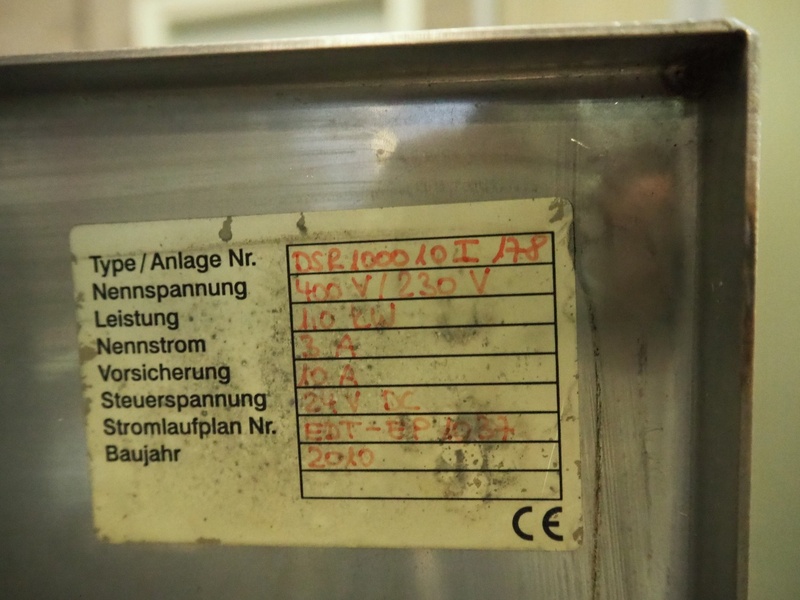 Type / Anlage Nr. DSR 1000 10 I 178
Nennspannung 400 V / 230 V
Leistung 1,0 kW
Nennstrom 3 A
Vorsicherung 10 A
Steuerspannung 24 V DC
Stromlaufplan Nr. EDT-BP 1037
Baujahr 2010
CE